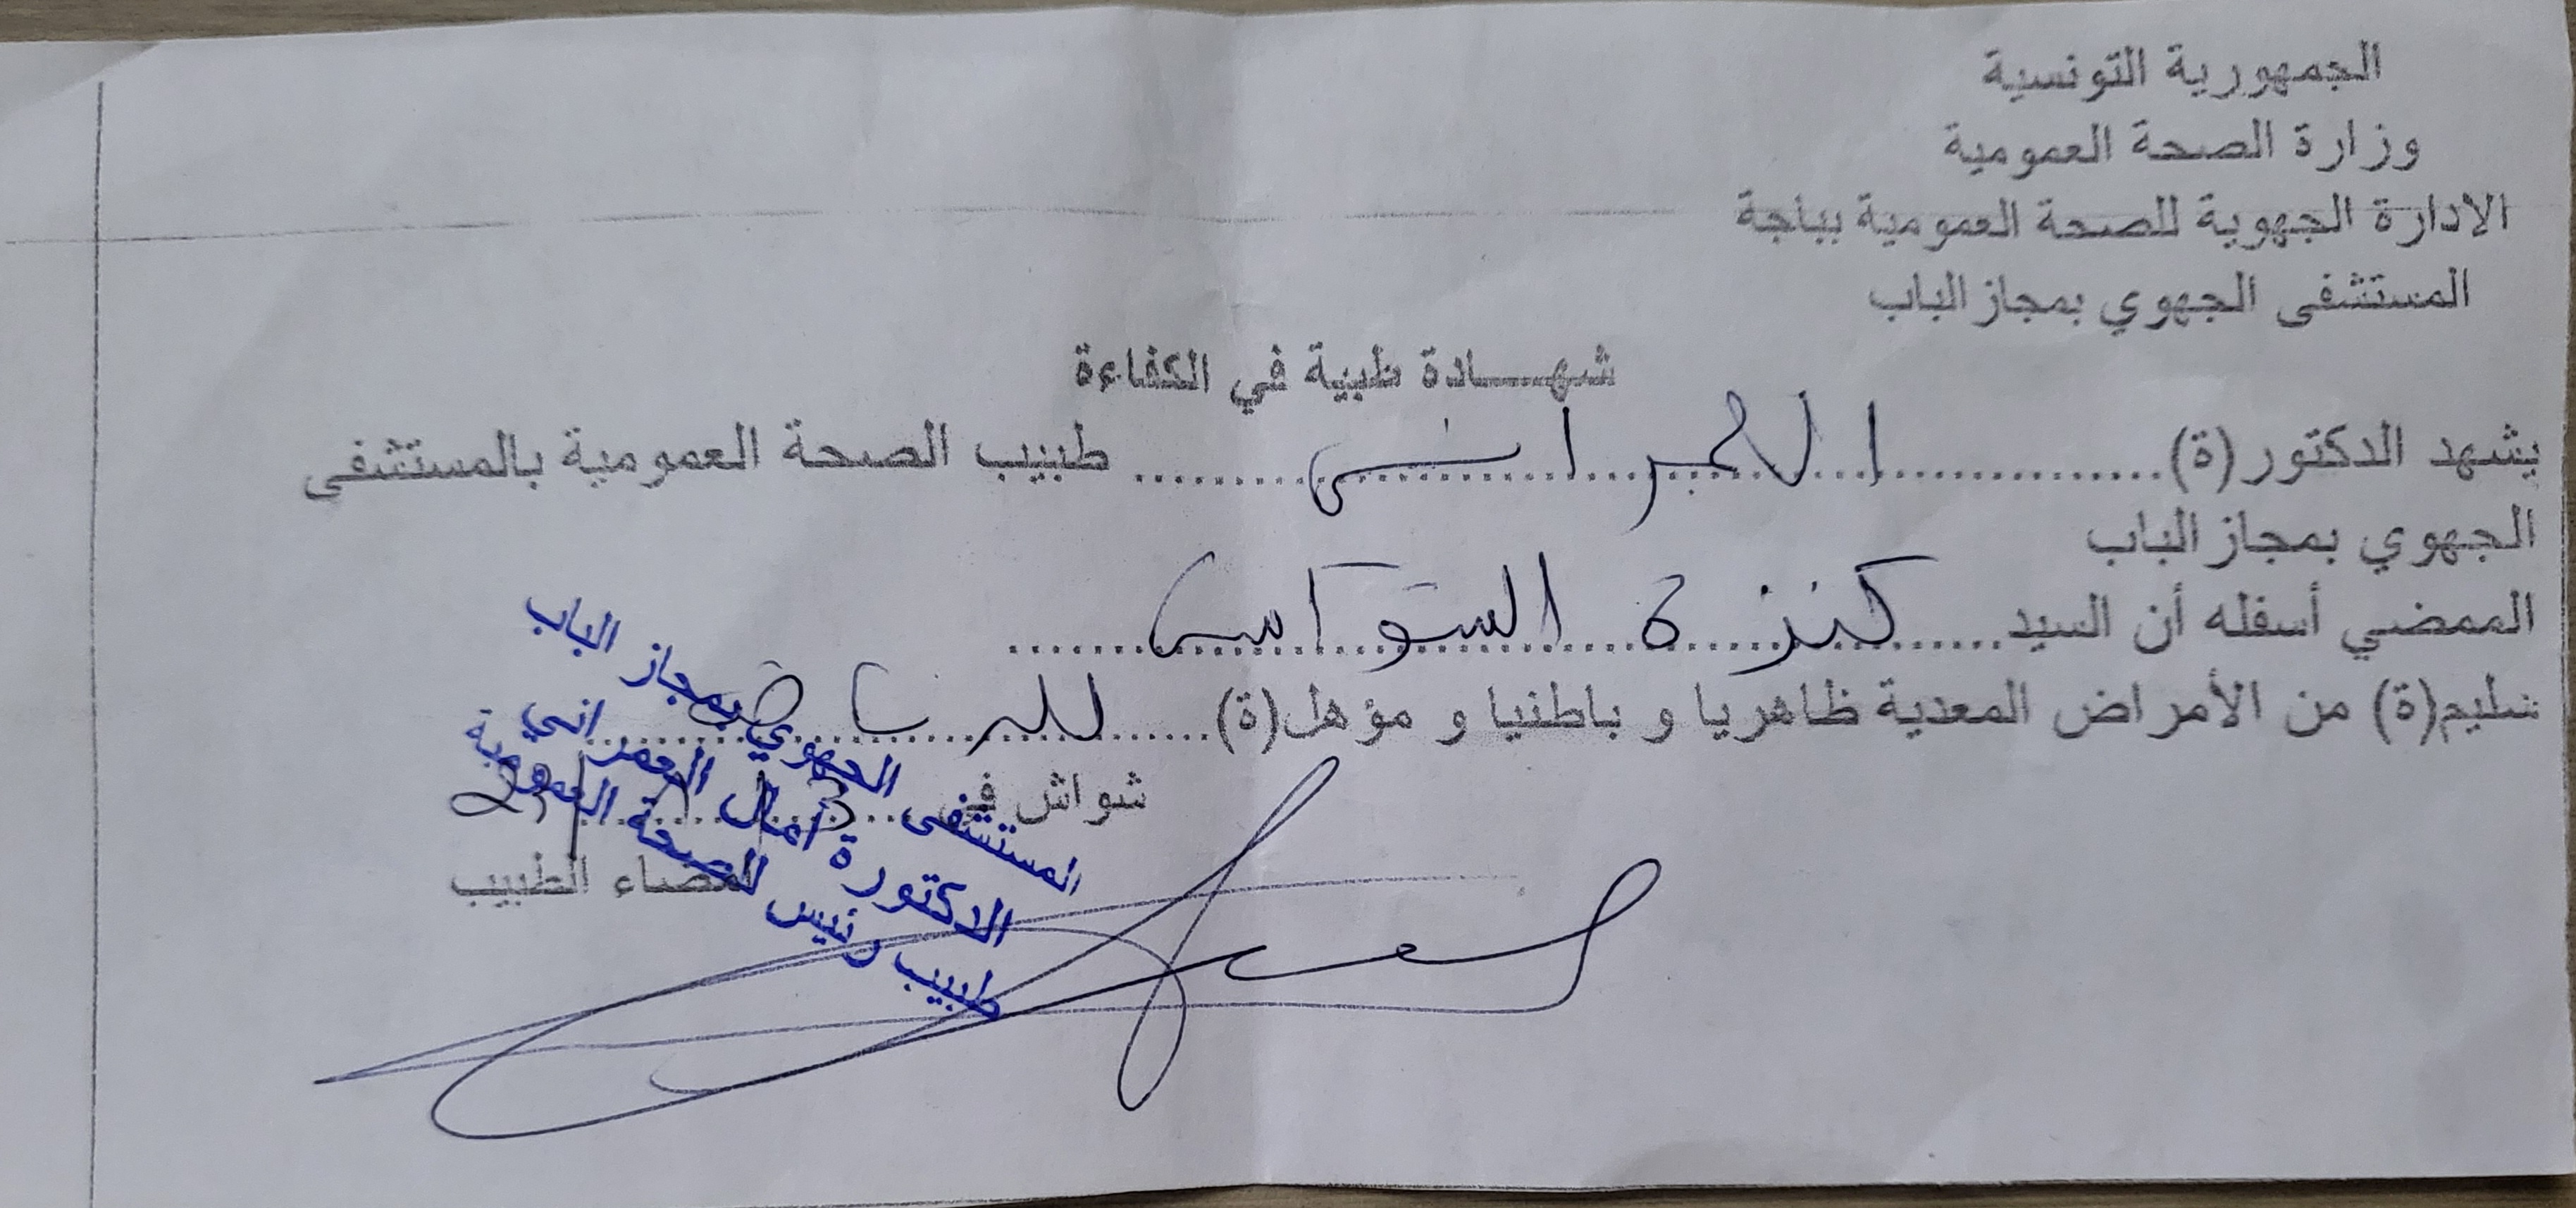 الجمهورية التونسية
وزارة الصحة العمومية
الادارة الجهوية للصحة العمومية بباجة
المستشفى الجهوي بمجاز الباب
شهـــادة طبية في الكفاءة
يشهد الدكتور(ة)......العمراني......طبيب الصحة العمومية بالمستشفى
الجهوي بمجاز الباب
الممضي أسفله أن السيد......كنزة السواسي......
سليم(ة) من الأمراض المعدية ظاهريا و باطنيا و مؤهل(ة)......للرياضة
شواش في
امضاء الطبيب
المستشفى الجهوي بمجاز الباب
الدكتورة امال العمراني
طبيب رئيس للصحة العمومية